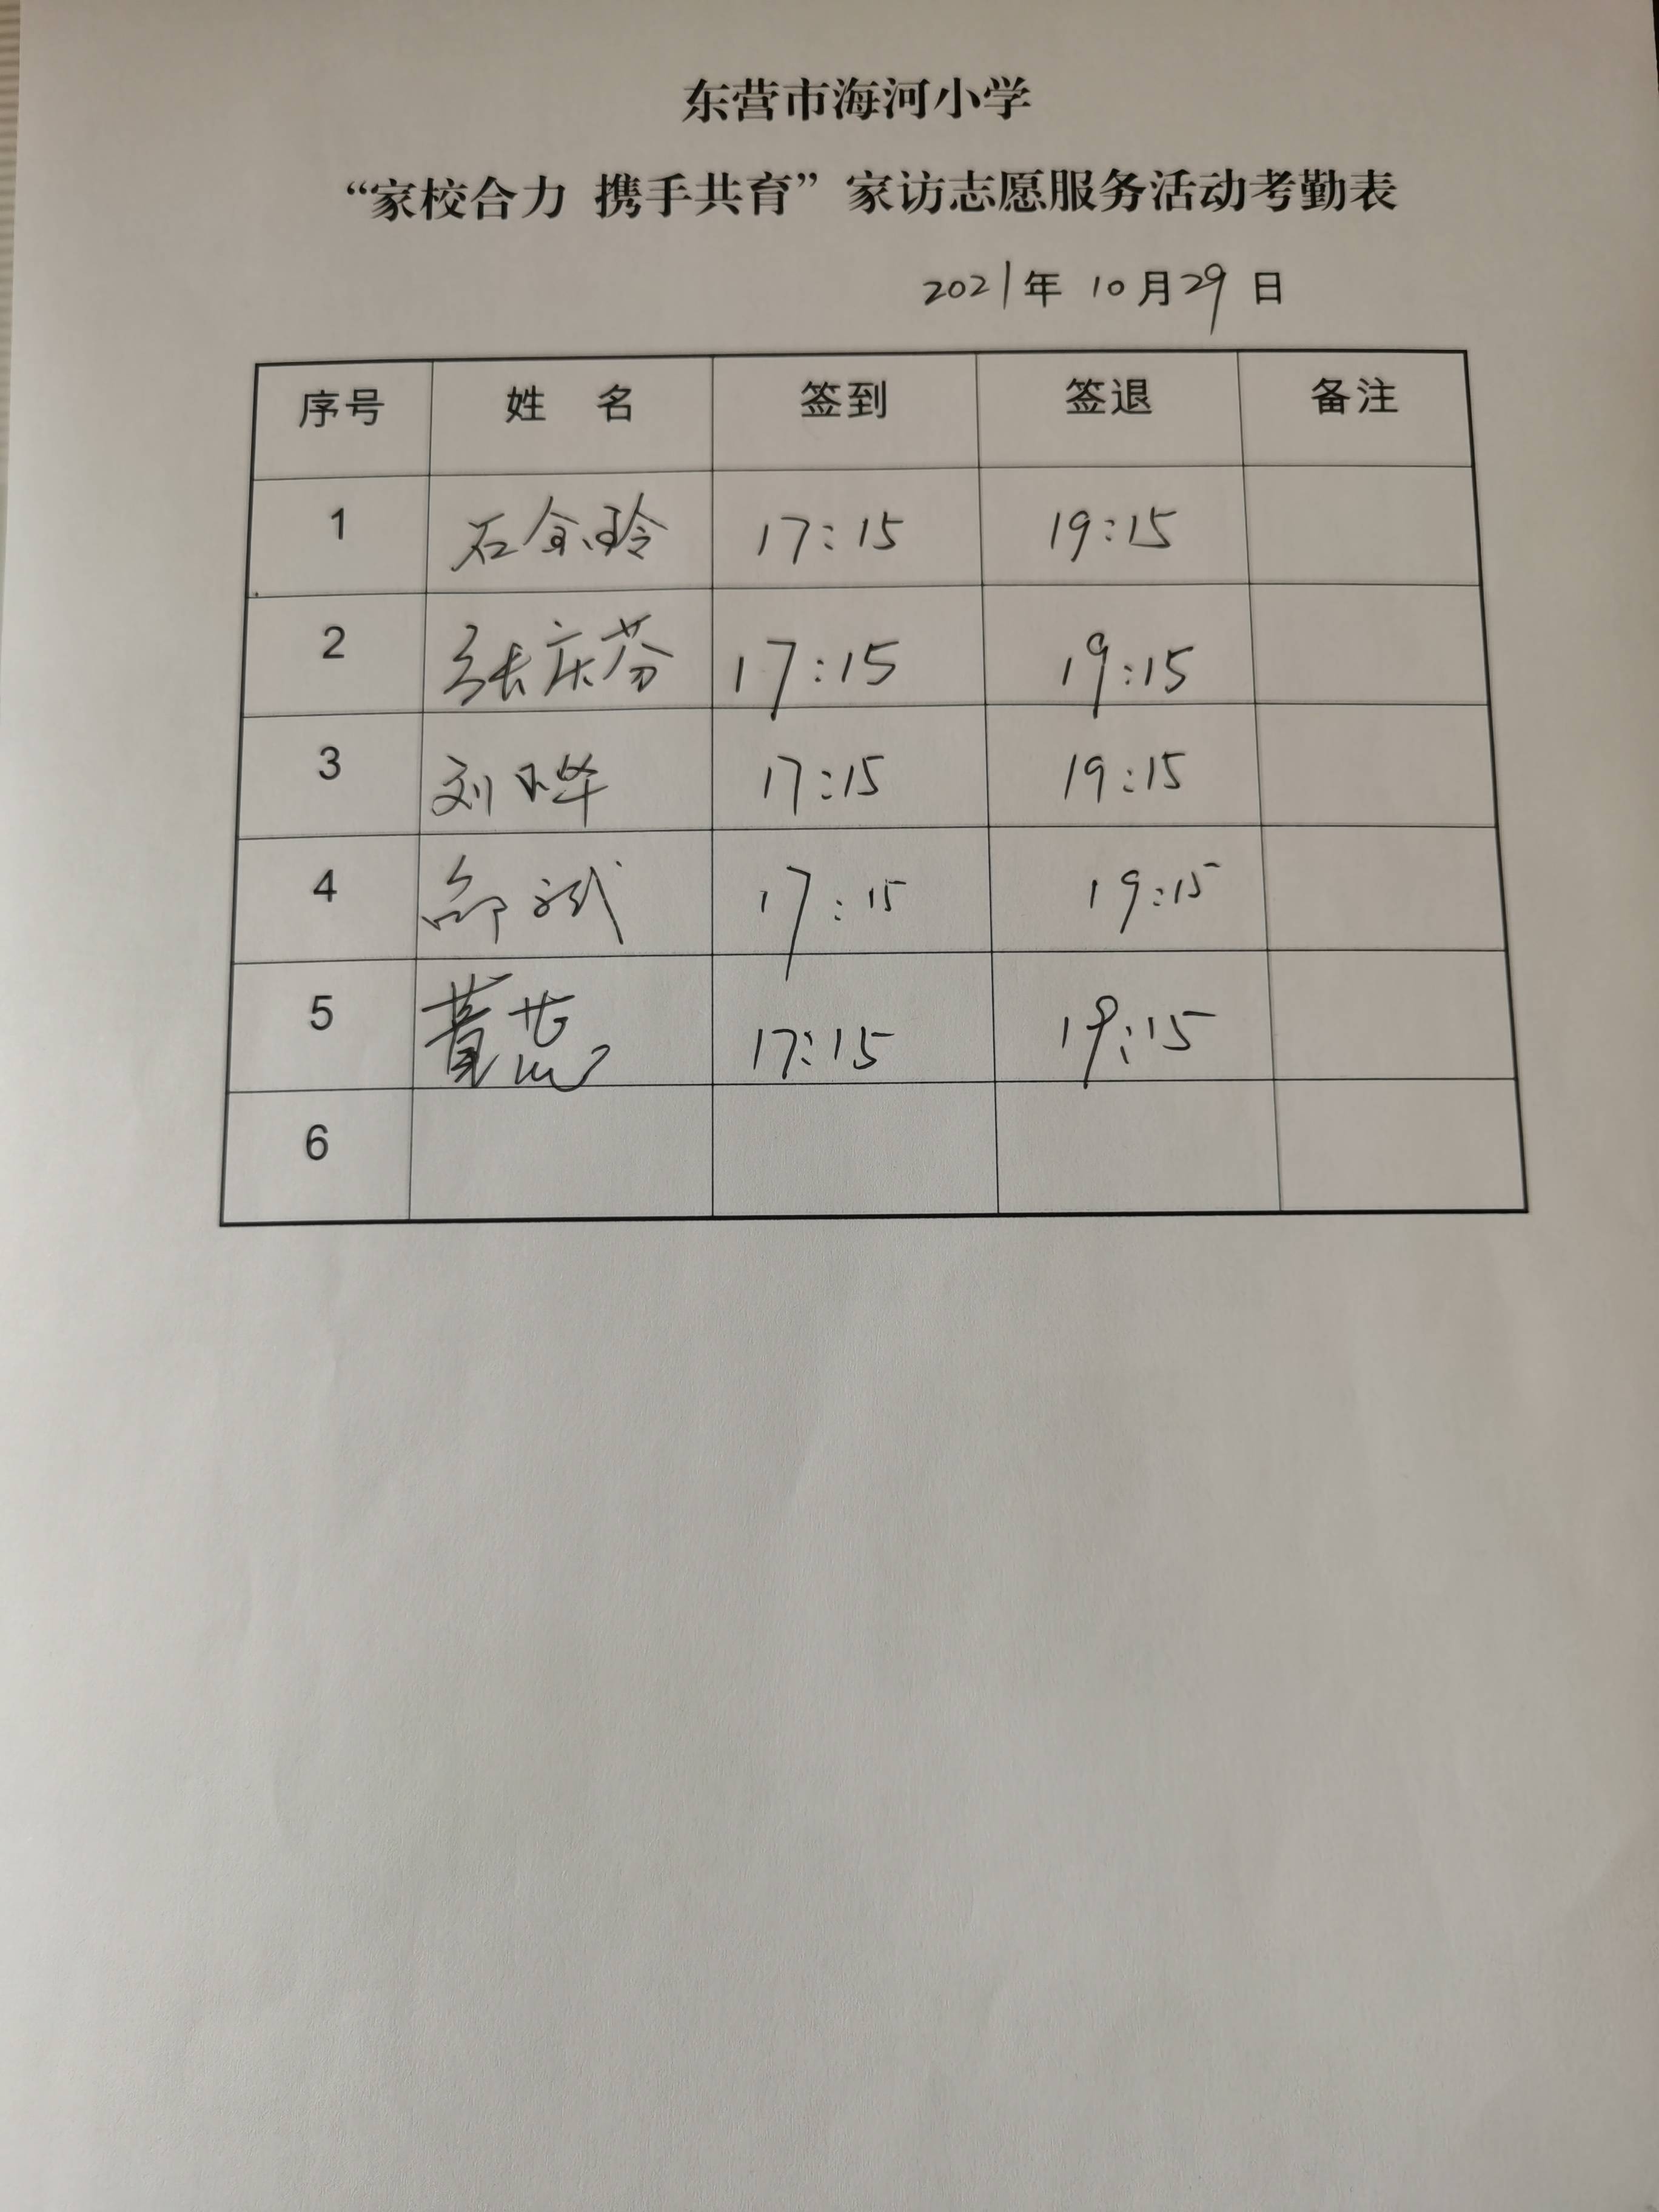 东营市海河小学
“家校合力 携手共育”家访志愿服务活动考勤表
2021年 10月29日
序号 姓 名 签到 签退 备注
1 石金玲 17:15 19:15
2 张庆芬 17:15 19:15
3 刘晔 17:15 19:15
4 17:15 19:15
5 17:15 19:15
6